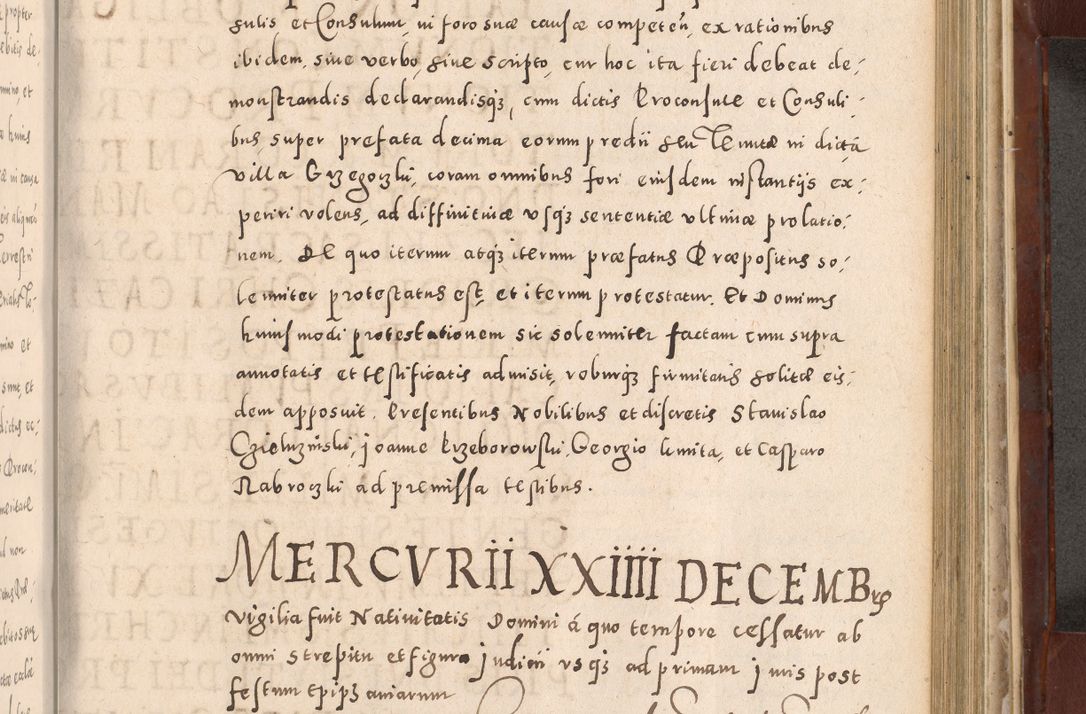 sulis, et Consulum, ni foro suæ causæ competeń, ex rationibus
ibidem, siue verbo, siue scripto, cur hoc ita fieri debeat de,
monstrandis declarandisqʒ, cum dictis Proconsule et Consuli,
bus super prefata decima eorum predii seu in dicta
villa Grzegorzki, coram omnibus fori eiusdem instantijs ex,
periri volens, ad diffinitiuæ vsqʒ sententiæ vltimæ prolatio,
nem. De quo iterum atqʒ iterum præfatus Præpositus so,
lemniter protestatus est, et iterum protestatur. Et Dominus
huiusmodi protestationem sic solemniter factam cum supra
annotatis et testificatis admisit, roburqʒ firmitatis solitæ eis,
dem apposuit. Presentibus Nobilibus et discretis Stanislao
Joanne Krzeborowski, Georgio et Casparo
Nabroczki ad premissa testibus.
MERCVRII XXIIII DECEMBris
Vigilia fuit Natiuitatis Domini á quo tempore cessatur ab
omni strepitu et figura judicii vsqʒ ad primam juris post
festum Epipʒ aniarum